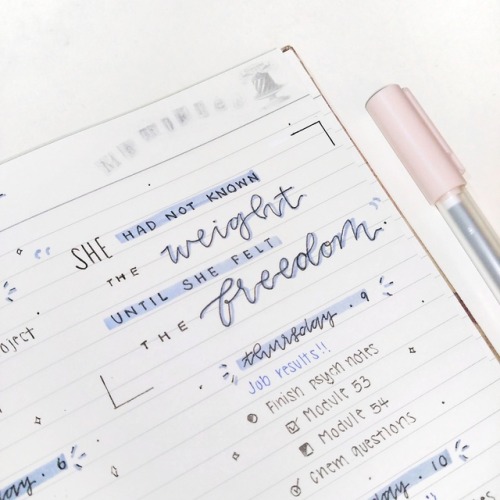 SHE HAD NOT KNOWN
THE weight
UNTIL SHE FELT
THE freedom.
oject
thursday . 9
Job results!!
Finish psych notes
Module 53
Module 54
chem questions
ay . 6
ay . 10